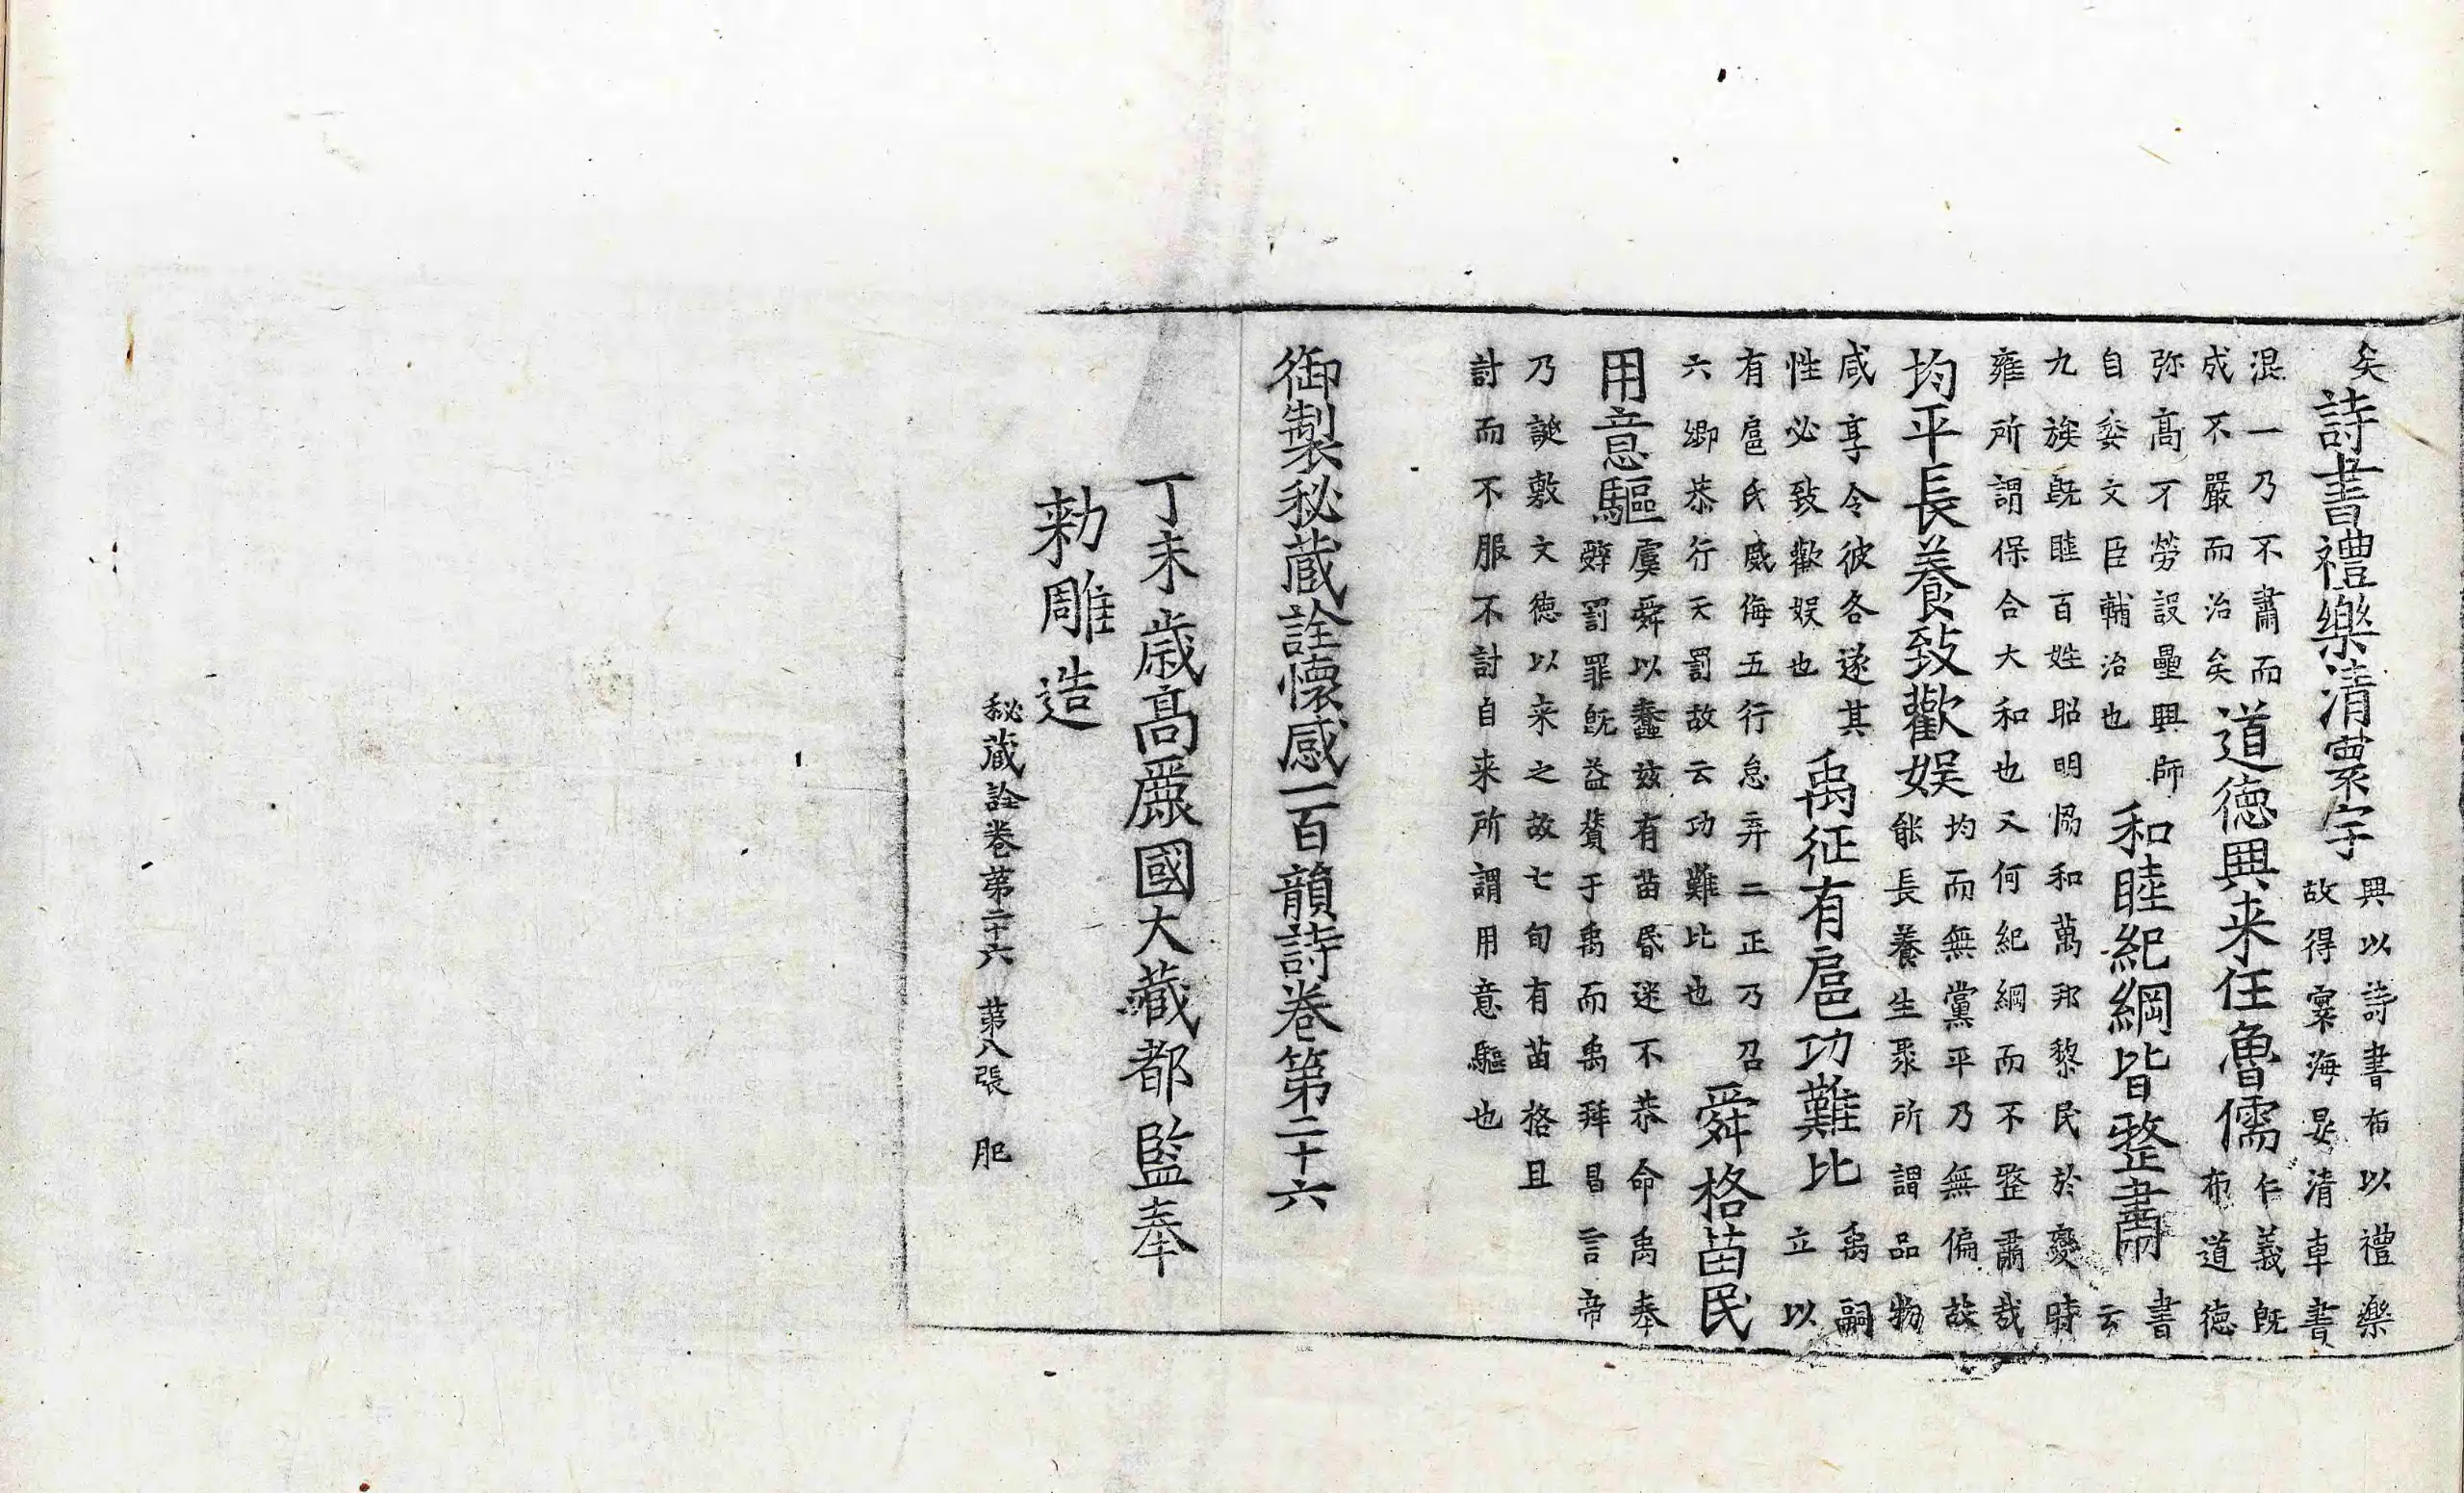 矣
詩書禮樂清寰宇
興以詩書布以禮樂
故得寰海晏清車書
混一乃不肅而
成不嚴而治矣
道德興来任魯儒
仁義既
布道德
弥高不勞設壘興師
自委文臣輔治也
和睦紀綱皆整肅
書
云
九族既睦百姓昭明恊和萬邦黎民於變時
雍所謂保合大和也又何紀綱而不整肅哉
均平長養致歡娱
均而無黨平乃無偏故
能長養生聚所謂品物
咸享令彼各遂其
性必致歡娱也
禹征有扈功難比
禹嗣
立以
有扈氏威侮五行怠弃二正乃召
六卿恭行天罰故云功難比也
舜格苗民
用意驅
虞舜以蠢兹有苗昏迷不恭命禹奉
辝罰罪既益賛于禹而禹拜昌言帝
乃誕敷文德以来之故七旬有苗格且
討而不服不討自来所謂用意驅也
御製秘蔵詮懷感一百韻詩卷第二十六
丁未歳高麗國大藏都監奉
勑雕造
秘蔵詮卷第二十六 第八張 肥